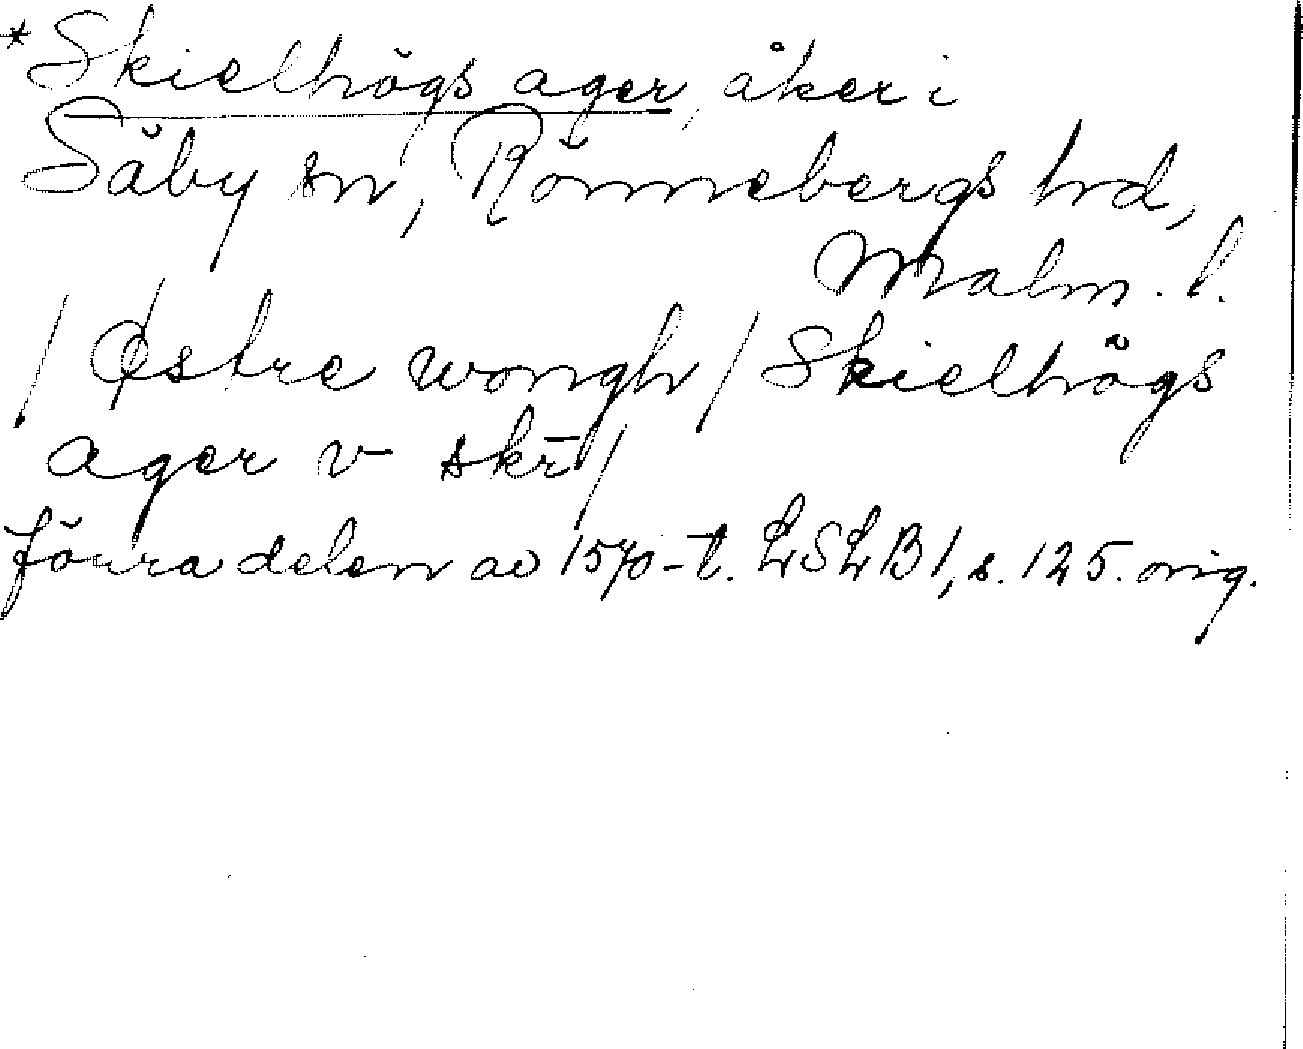 *Skielhögs ager, åker i
Säby sn, Rönnebergs hd,
Malm. l.
/ Østre wongh / Skielhögs
ager v skr̄ /
förra delen av 1570-t. LSLB1, s. 125. orig.